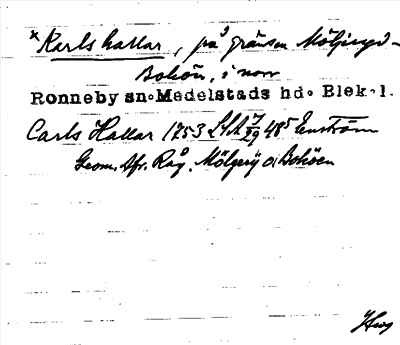 *Karls hallar, på gränsen Möljeryd-
Bohön, i norr
Ronneby sn. Medelstads hd. Blek.l.
Carls Hallar 1753 LSA 7/29 48⁵ Enström
Geom. Afr. Råg. Mölgerÿ o. Bohöen